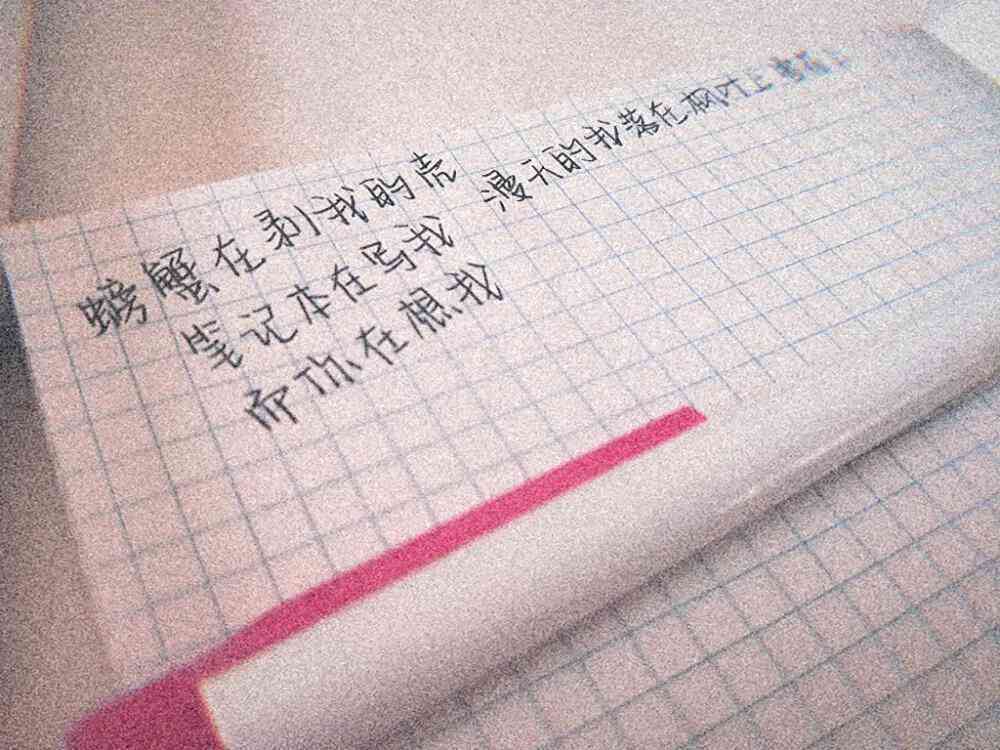 螃蟹在剥我的壳
笔记本在写我 漫天的我落在枫叶上
而你在想我